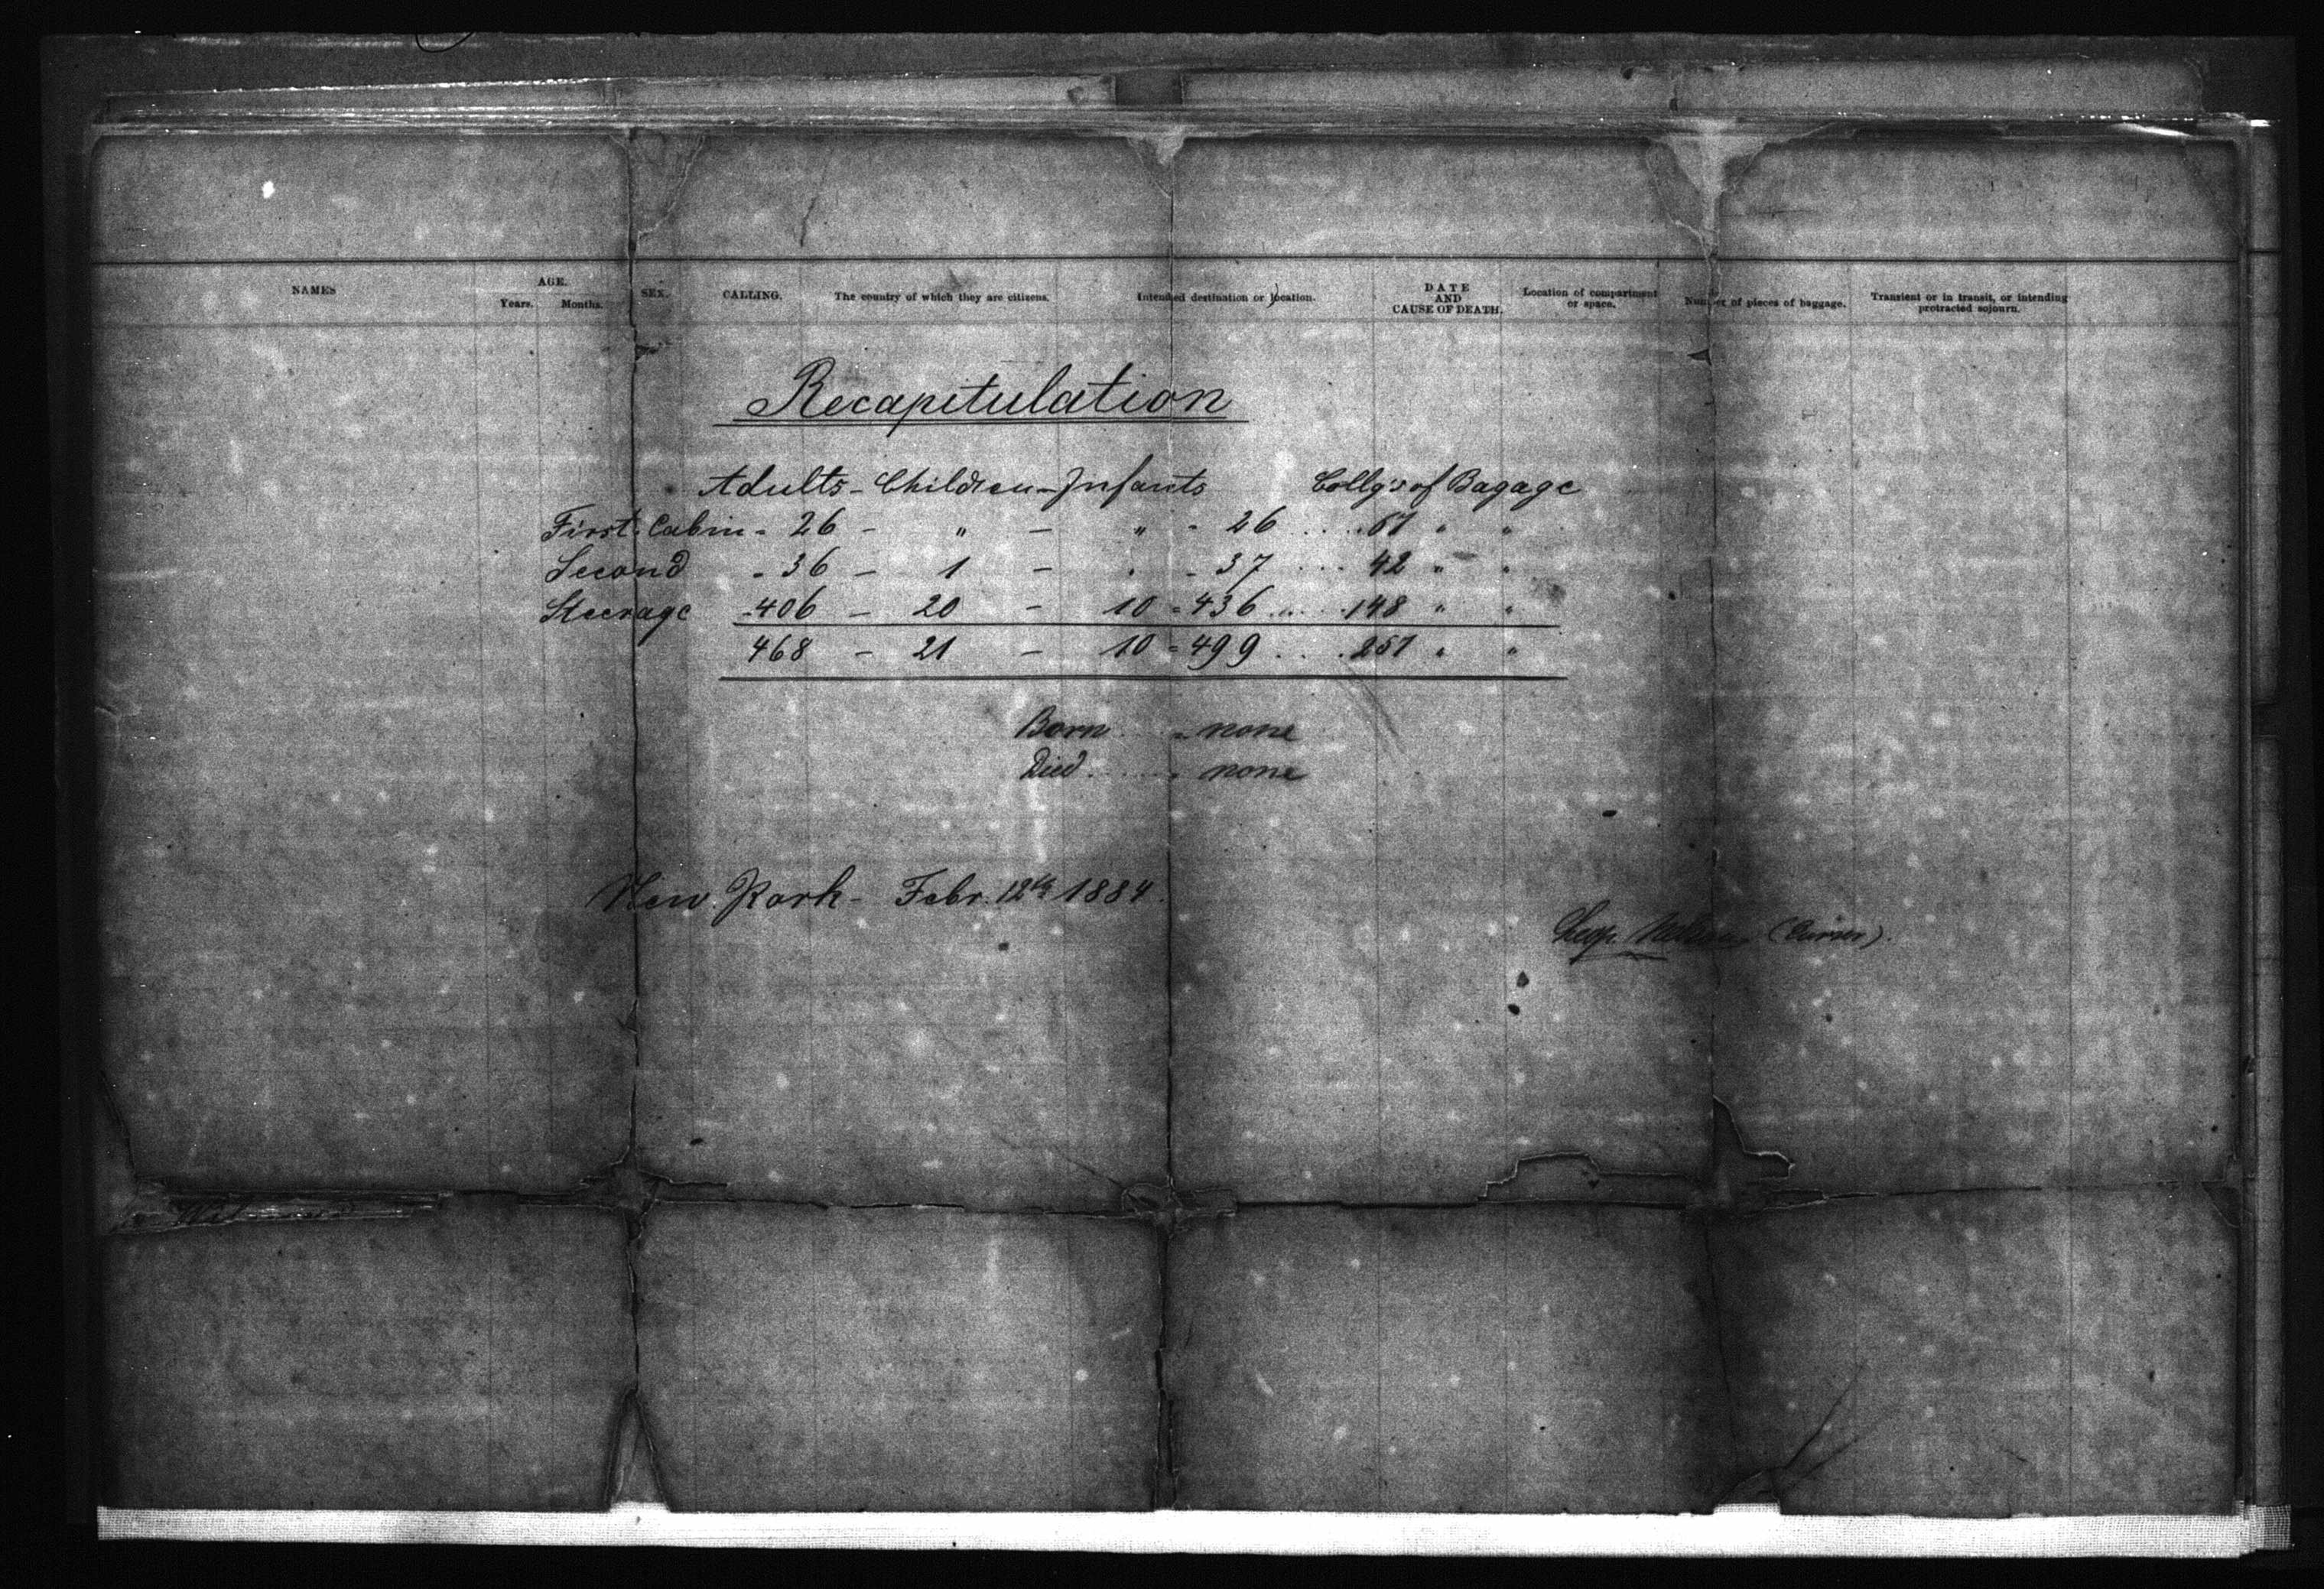 NAMES
AGE.
Years. Months.
SEX.
CALLING.
The country of which they are citizens.
Intended destination or location.
DATE
AND
CAUSE OF DEATH.
Location of compartment
or space.
Number of pieces of baggage.
Transient or in transit, or intending
protracted sojourn.
Recapitulation
Adults - Children - Infants Colly's of Bagage
First Cabin - 26 - " - " - 26 .... 67 " "
Second - 36 - 1 - " - 37 .... 42 " "
Steerage 406 - 20 - 10 = 436 .... 148 " "
468 - 21 - 10 = 499 .... 257 " "
Born .... none
Died ...... none
New York - Febr. 12th 1884.